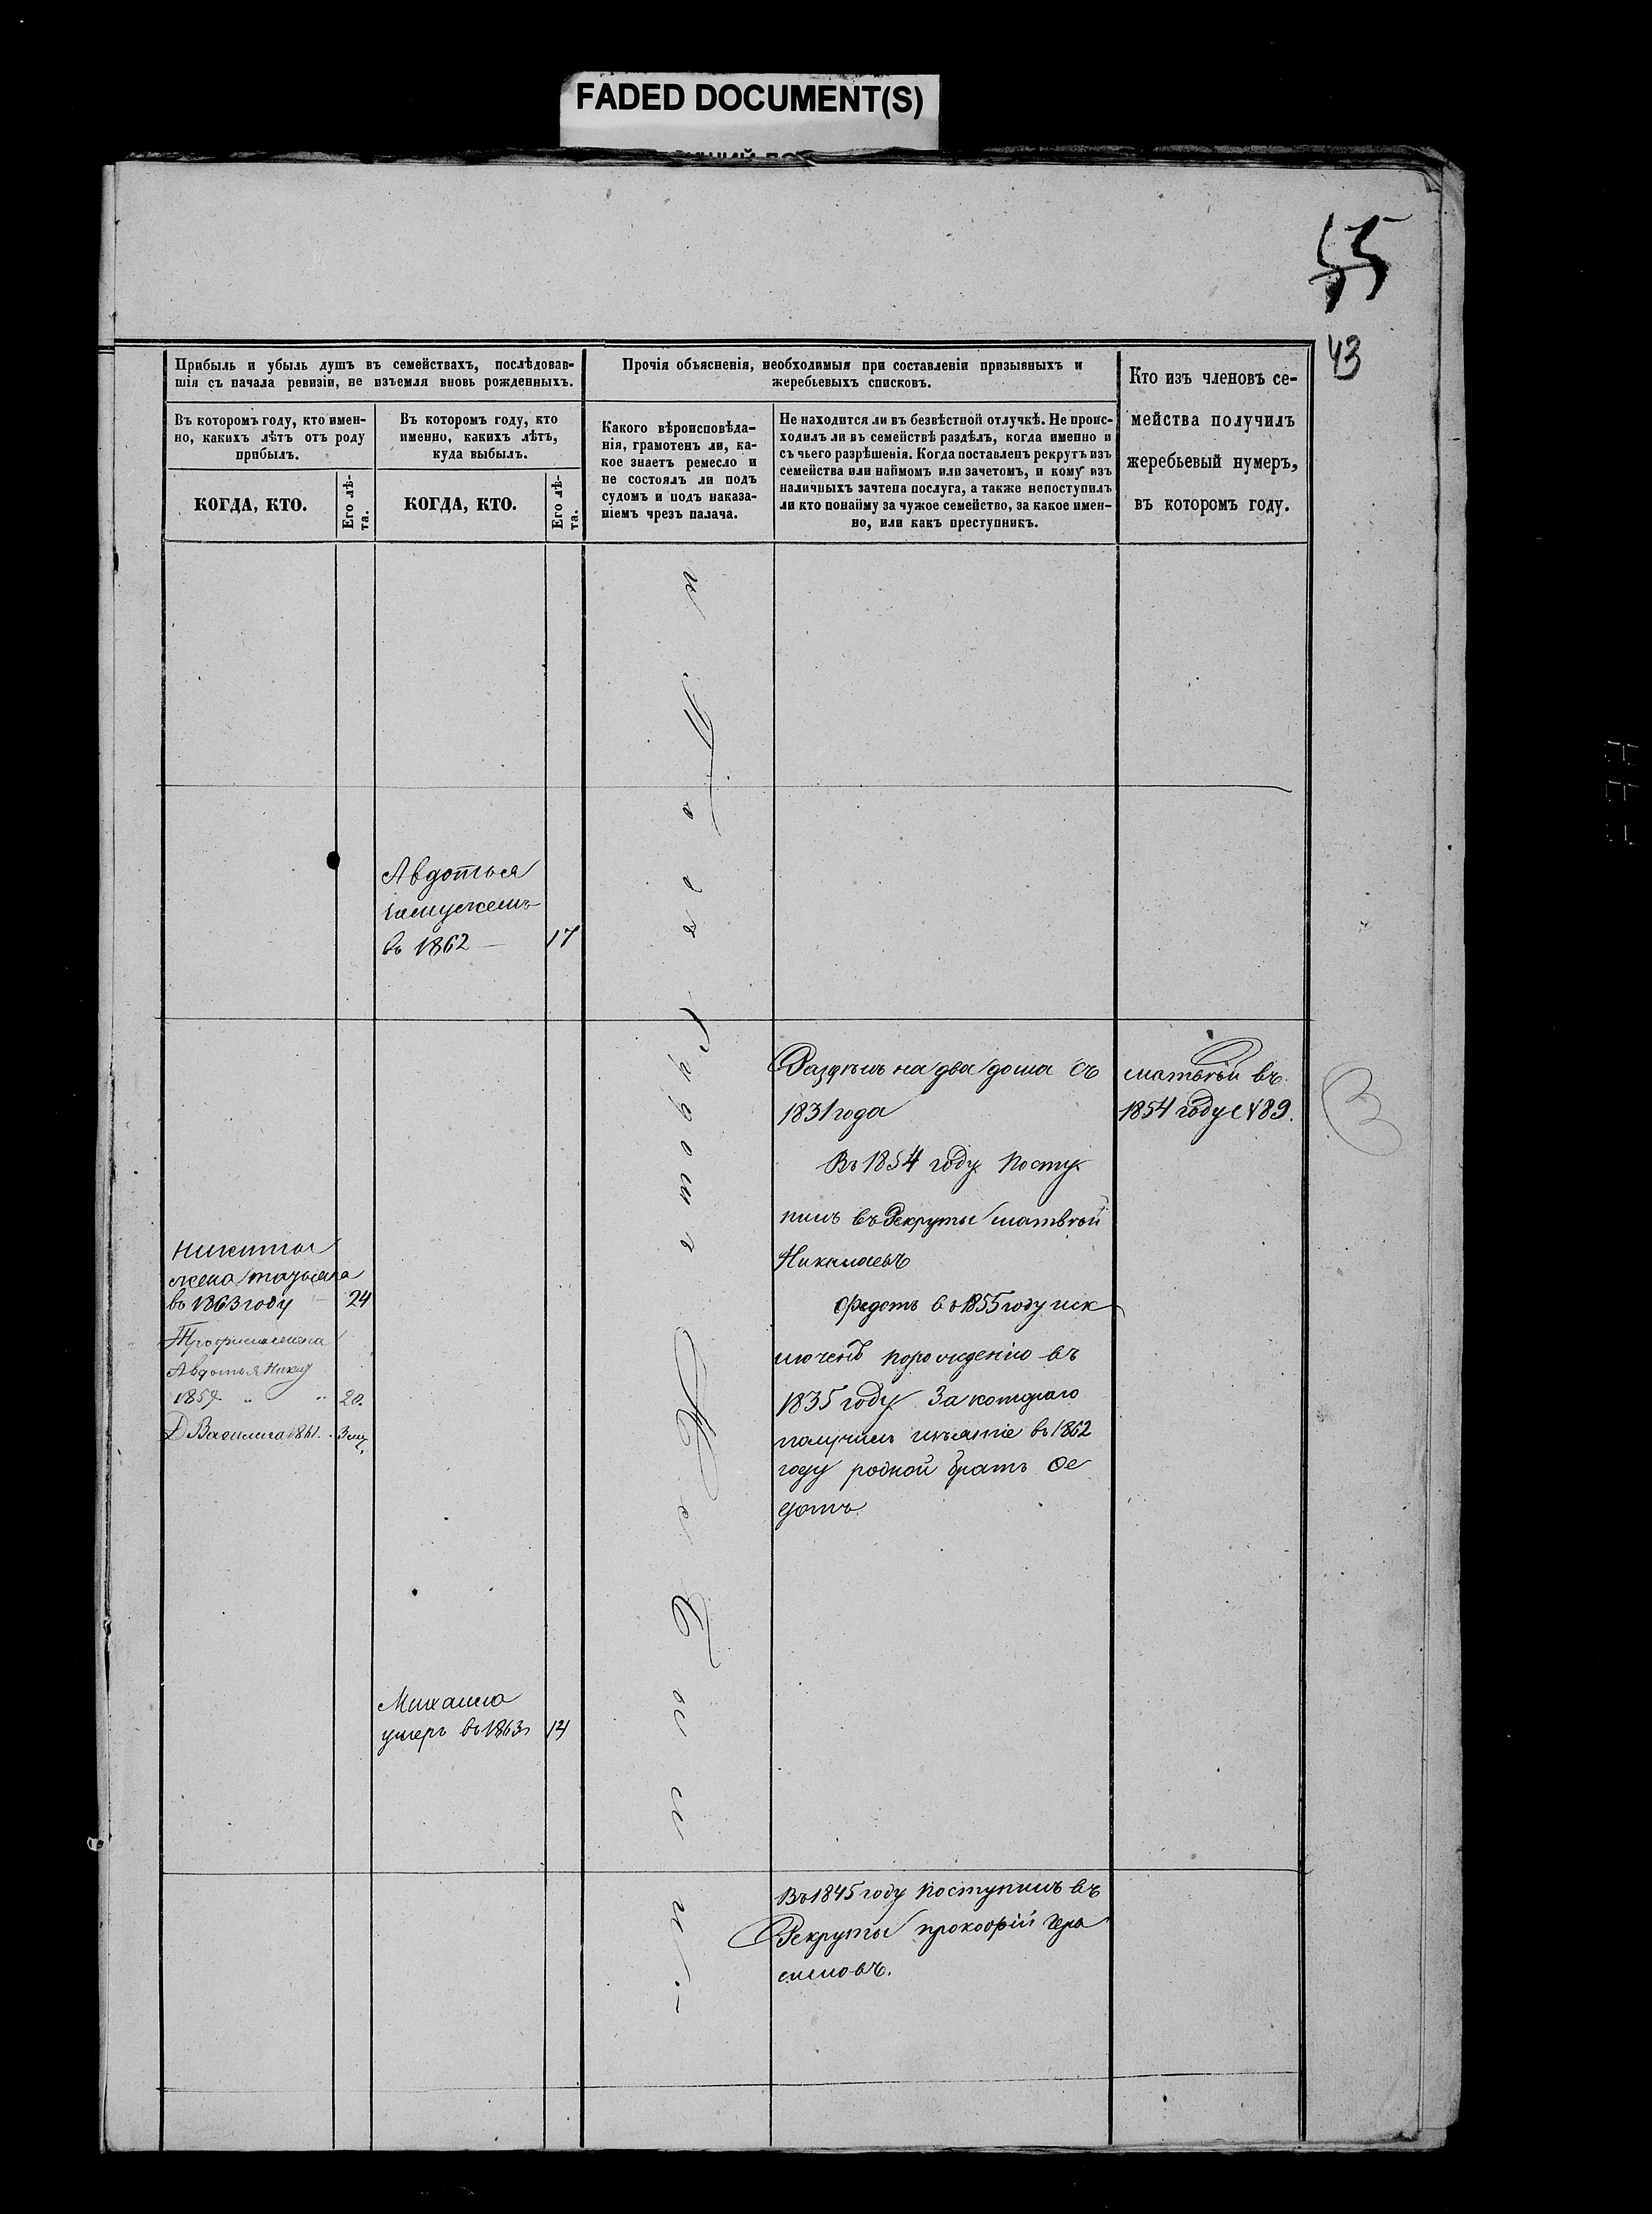 FADED DOCUMENT(S)
55
43
Прибыль и убыль душъ въ семействахъ, послѣдовав-
шія съ начала ревизіи, не изъемля вновь рожденныхъ.
Прочія объясненія, необходимыя при составленіи призывныхъ и
жеребьевыхъ списковъ.
Кто изъ членовъ се-
мейства получилъ
жеребьевый нумеръ,
въ которомъ году.
Въ которомъ году, кто имен-
но, какихъ лѣтъ отъ роду
прибылъ.
Въ которомъ году, кто
именно, какихъ лѣтъ,
куда выбылъ.
Какого вѣроисповѣда-
нія, грамотенъ ли, ка-
кое знаетъ ремесло и
не состоялъ ли подъ
судомъ и подъ наказа-
ніемъ чрезъ палача.
Не находится ли въ безвѣстной отлучкѣ. Не проис-
ходилъ ли въ семействѣ раздѣлъ, когда именно и
съ чьего разрѣшенія. Когда поставленъ рекрутъ изъ
семейства или наймомъ или зачетомъ, и кому изъ
наличныхъ зачтена послуга, а также непоступилъ
ли кто понайму за чужое семейство, за какое имен-
но, или какъ преступникъ.
КОГДА, КТО.
Его лѣ-
та.
КОГДА, КТО.
Его лѣ-
та.
Авдотья
замужемъ
въ 1862 17
Раздѣлъ на два дома съ
1831 года
Въ 1854 году посту
пилъ въ Рекруты матвѣй
Николаевъ
Федотъ въ 1855 году иск
люченъ порожденію въ
1835 году За котораго
получилъ
въ 1862
году родной братъ Фе
дотъ.
матвѣй въ
1854 году № 89.
Никиты
жена
въ 1863 году 24
Трофима жена
Авдотья
20.
Д Василиса 1861.
Михаила
умеръ въ 1863
Въ 1845 году поступилъ въ
Рекруты прокофій Гера
симовъ.